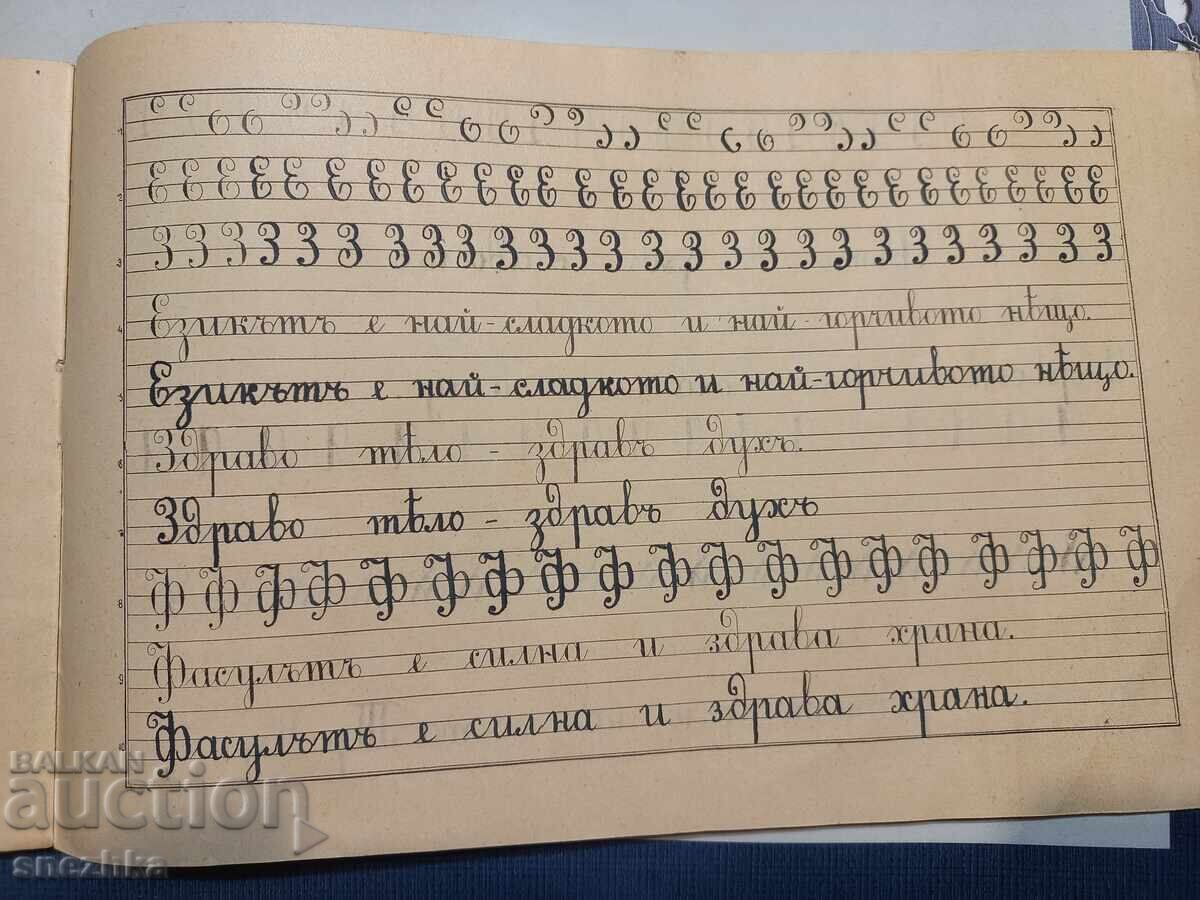 З З З З З З З З З З З З З З З З З З З З З З З З
Езикътъ е най-сладкото и най-горчивото нѣщо.
Езикътъ е най-сладкото и най-горчивото нѣщо.
Здраво тѣло - здравъ духъ.
Здраво тѣло - здравъ духъ
Ф Ф Ф Ф Ф Ф Ф Ф Ф Ф Ф Ф Ф Ф Ф Ф Ф Ф Ф
Фасулътъ е силна и здрава храна.
Фасулътъ е силна и здрава храна.
BALKAN
auction
snezhka